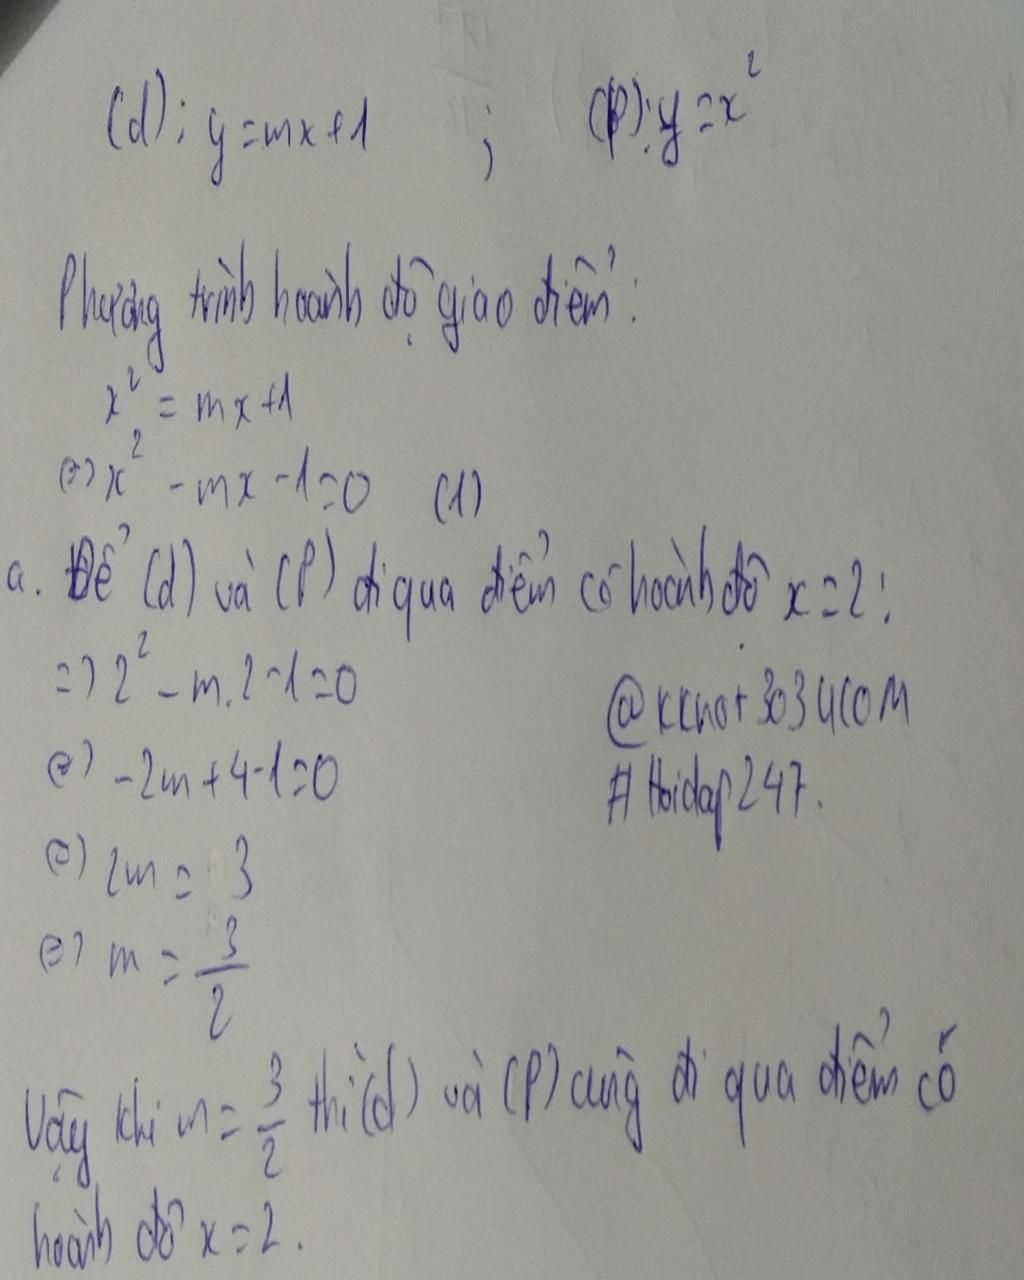 (d): y=mx+1 ; (P): y=x²
Phương trình hoành độ giao điểm:
x² = mx+1
⇔ x² - mx - 1=0 (1)
a. Để (d) và (P) đi qua điểm có hoành độ x=2:
=> 2² - m.2-1=0
⇔ -2m+4-1=0
⇔ 2m = 3
⇔ m = 3/2
@kknot3034COM
# Hoidap247.
Vậy khi m= 3/2 thì (d) và (P) cùng đi qua điểm có
hoành độ x=2.